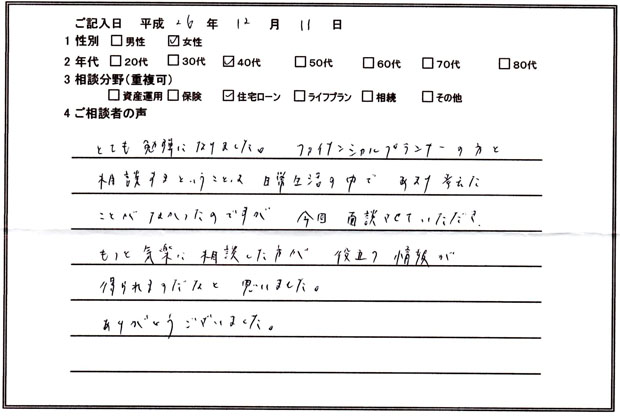 ご記入日 平成 26 年 12 月 11 日
1 性別 □男性 ☑女性
2 年代 □20代 □30代 ☑40代 □50代 □60代 □70代 □80代
3 相談分野(重複可)
□資産運用 □保険 ☑住宅ローン □ライフプラン □相続 □その他
4 ご相談者の声
とても勉強になりました。 ファイナンシャルプランナーの方と
相談するということは 日常生活の中で あまり考えた
ことがなかったのですが 今回 面談させていただき、
もっと気楽に相談した方が 役立つ 情報が
得られるのだなと 思いました。
ありがとうございました。